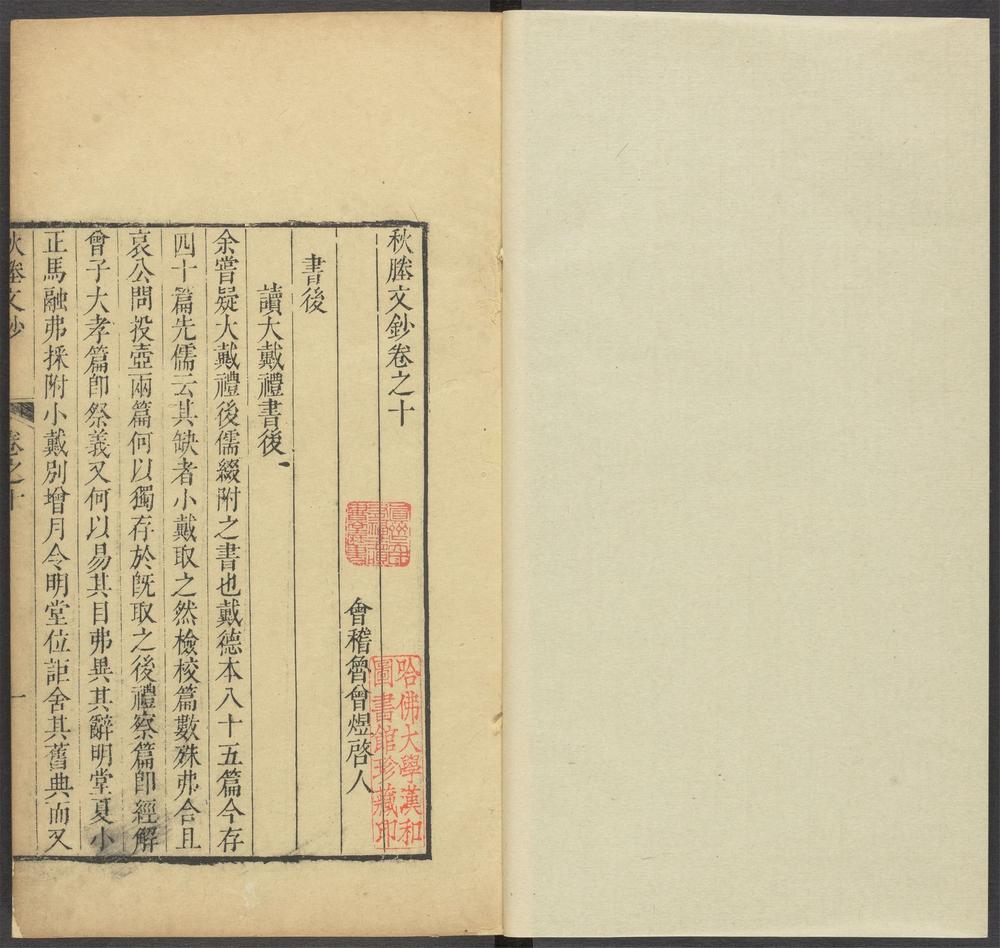 秋塍文鈔卷之十
會稽魯曾煜啓人
書後
讀大戴禮書後
余嘗疑大戴禮後儒綴附之書也戴德本八十五篇今存
四十篇先儒云其缺者小戴取之然檢校篇數殊弗合且
哀公問投壺兩篇何以獨存於旣取之後禮察篇卽經解
曾子大孝篇卽祭義又何以易其目弗異其辭明堂夏小
正馬融弗採附小戴別增月令明堂位詎舍其舊典而又
秋塍文鈔
卷之十
一
哈佛大學漢和
圖書館珍藏印